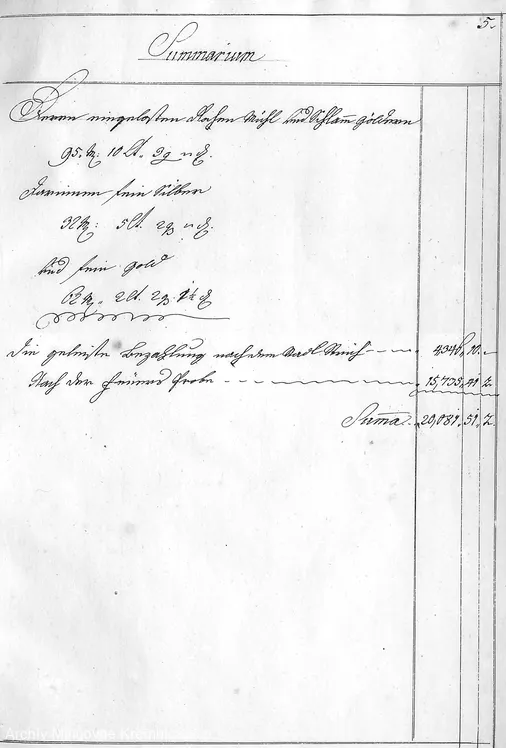 5.
Summarium
Deren eingelösten Rohen Mühl und Schlam̅ göldern
95. M: 10 Lt. 3 q – d.
Darinnen fein Silber
32 M: 5 Lt. 2 q – d.
Und fein Gold
62 M. 2 Lt. 2 q 1 d
Die geleiste Bezahlung nach dem Nadl Strich 4346. 10. –
Nach der Feuers Probe 15,735. 41. 2.
Sum̅a 20,081. 51. 2.
Archiv Mincovne Kremnica